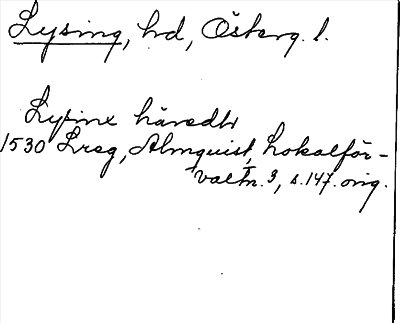 Lysing, hd, Österg. l.
Lysinx häredh
1530 Lreg, Almquist, Lokalför-
valtn. 3, s. 147. orig.